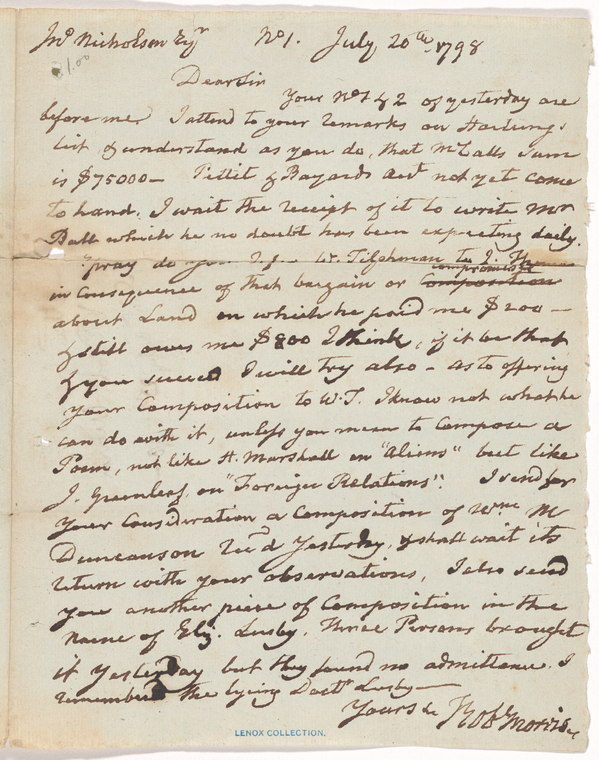 Jno Nicholson Esqr No 1. July 20th 1798
$1.00
Dear Sir
Your Nos 1 & 2 of yesterday are
before me I attend to your remarks on Hartungs
list & understand as you do, that McCalls sum
is $75000— Pettit & Bayards acct not yet come
to hand. I wait the receipt of it to write Mr
Ball which he no doubt has been expecting daily.
pray do you W. Tilghman to J.
compromise
in consequence of that bargain or Composition
about Land on which he paid me $200—
& still owes me $800 I think, if it be that
& you succeed I will try also - as to offering
your Composition to W.T. I know not what he
can do with it, unless you mean to Compose a
Poem, not like H. Marshall on "Aliens" but like
J. Greenleaf on "Foreign Relations". I send for
your Consideration a Composition of Wm M
Duncanson recd yesterday, & shall wait its
return with your observations, I also send
you another piece of Composition in the
name of Eliz. Lusby. Three Persons brought
it yesterday but they found no admittance. I
remember the lying Doctr Lusby—
Yours &c Robt Morris
LENOX COLLECTION.